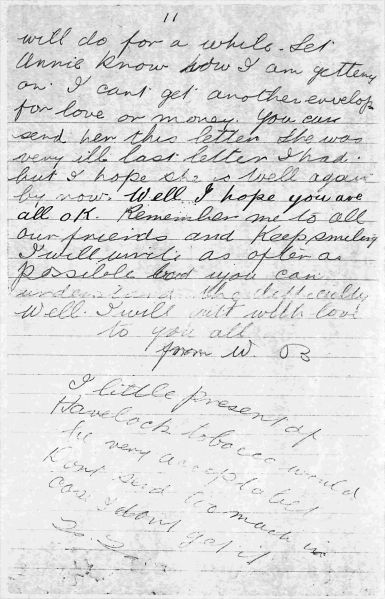 11
will do for a while. Let
Annie Know how I am getteng
on. I cant get another envelop
for love or money. You can
send her this letter she was
very ill last letter I had.
but I hope she is well again
by now. Well I hope you are
all OK. Remember me to all
our friends and Keep smiling
I will write as often as
possible but you can
understand the difficulty
Well I will with love
to you all
from W. B
I little present of
Havelock tobacco would
be very acceptabel
Dont send to much in
case I dont get it